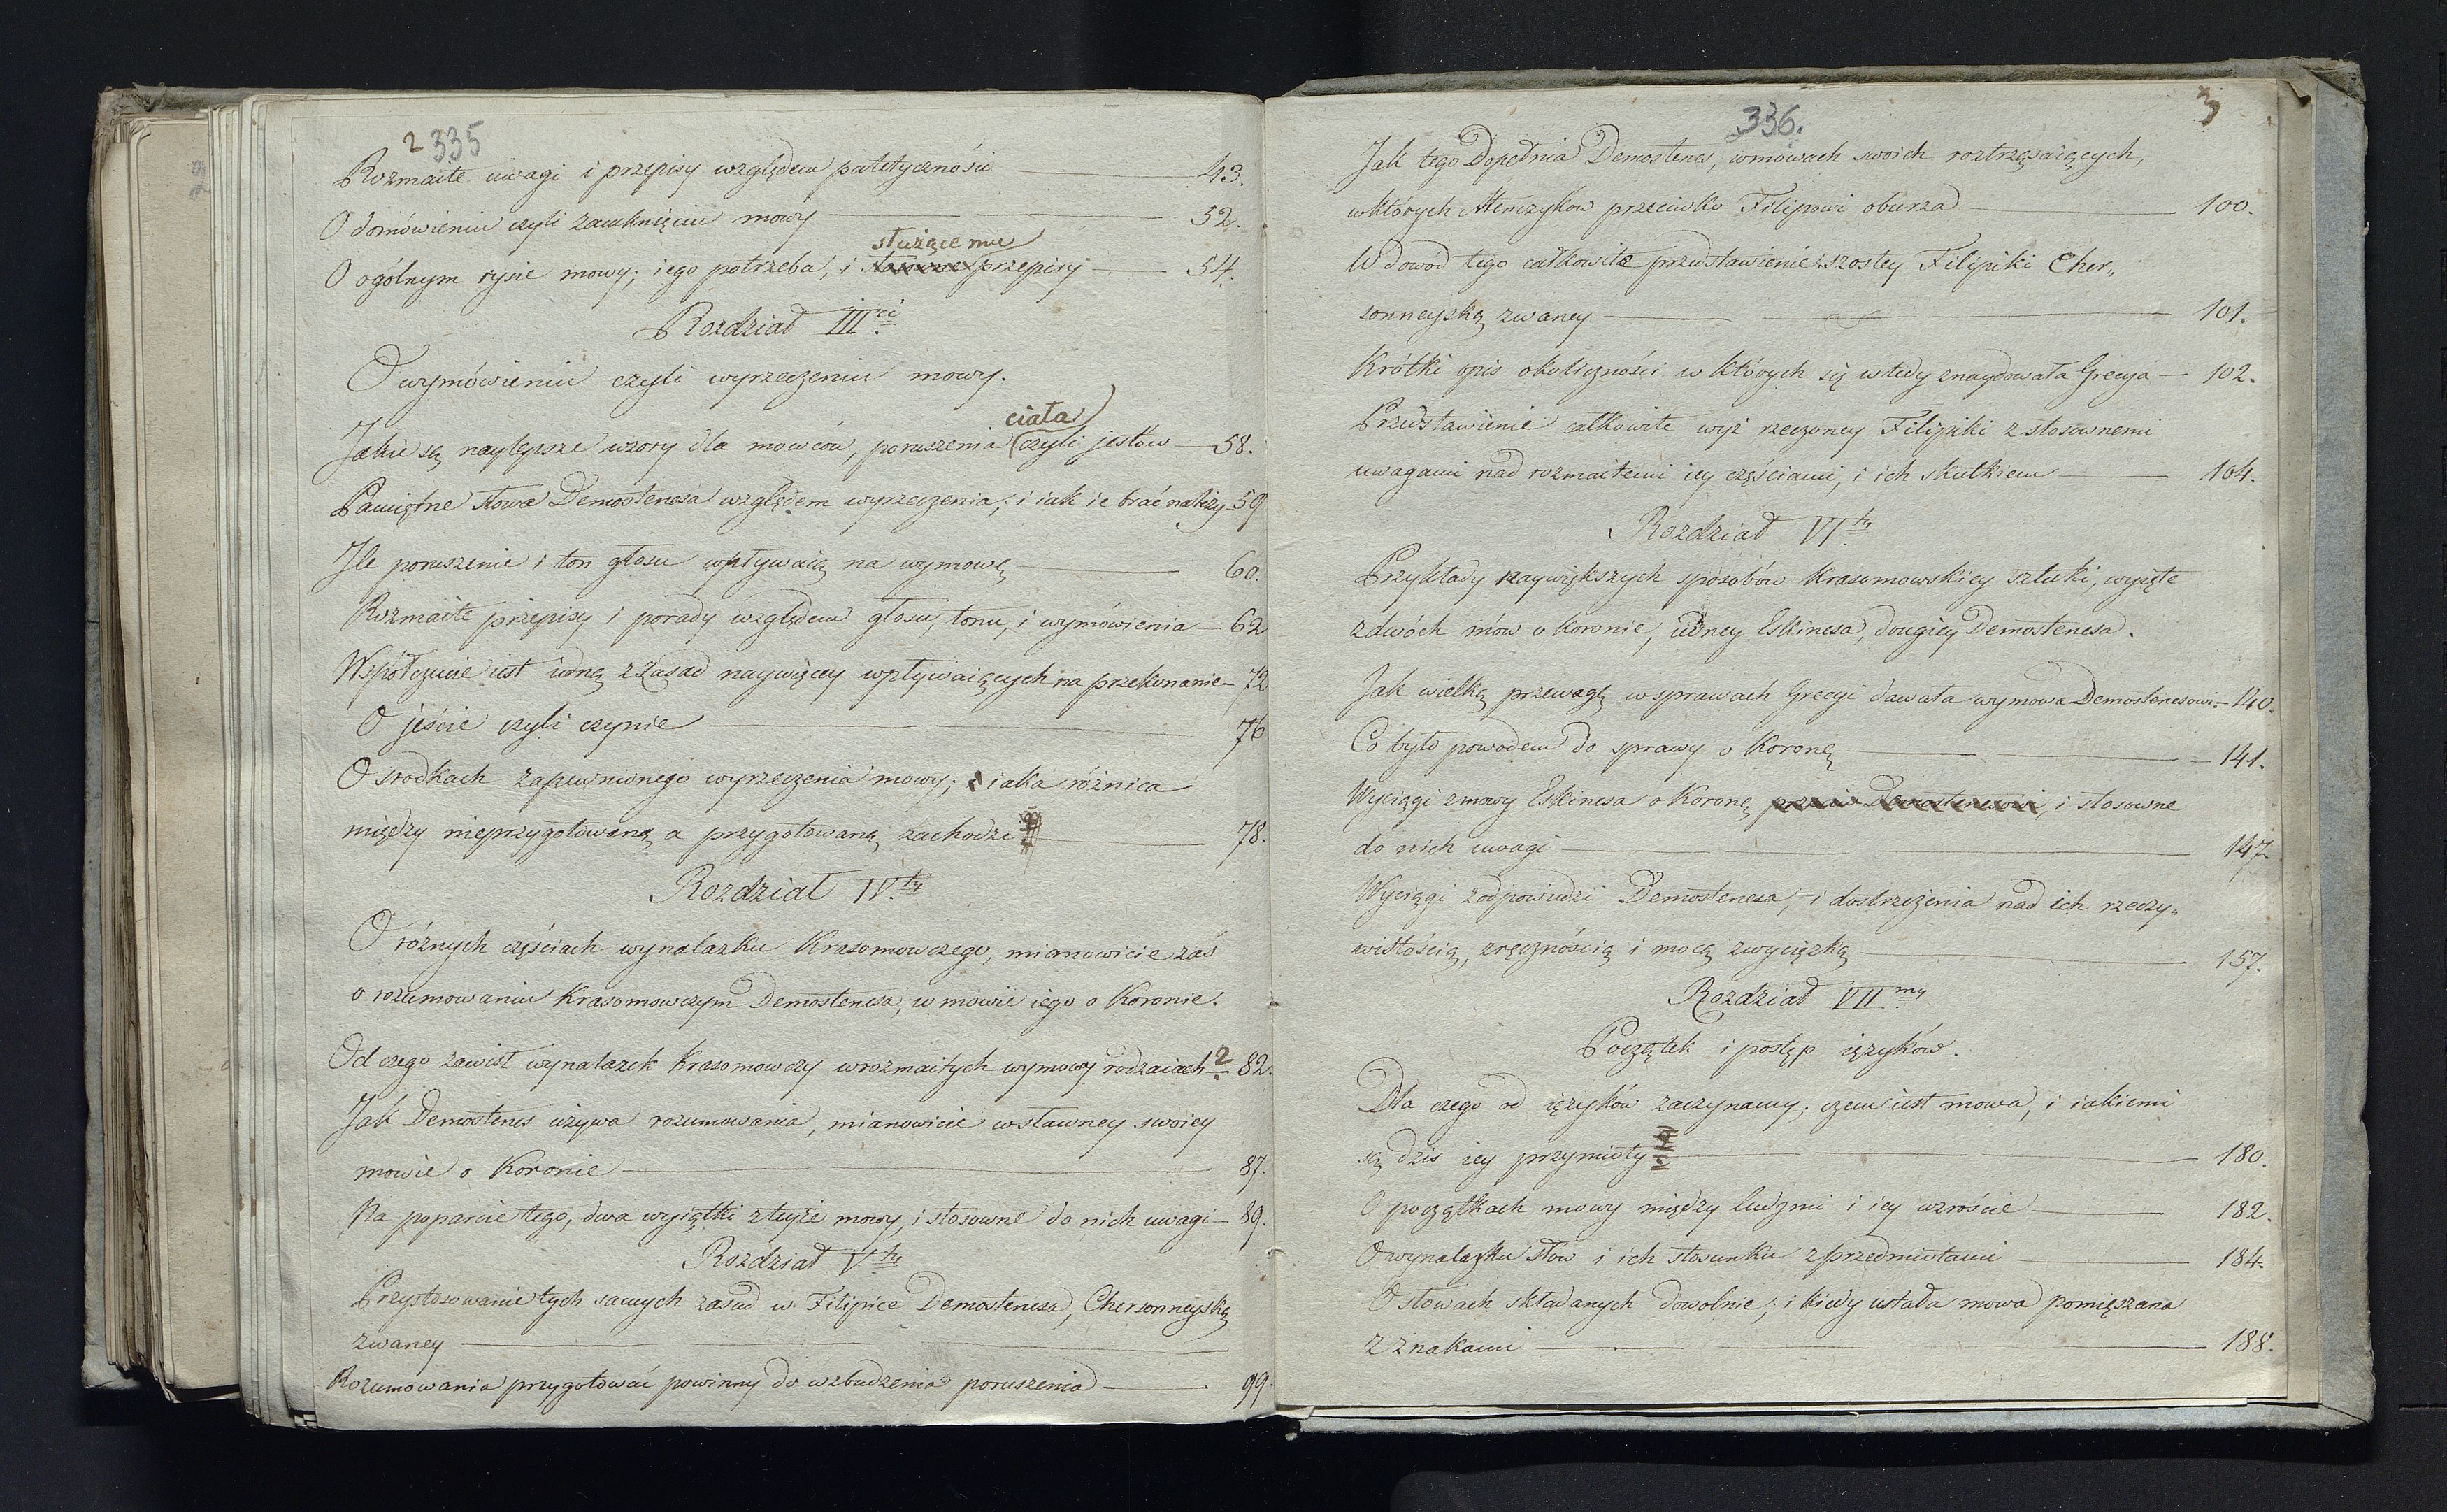 2 335
Rozmaite uwagi i przepisy względem patetyczności — 43.
O domówieniu czyli zamknięciu mowy — 52.
służące mu
O ogólnym rysie mowy; iego potrzeba, i stosowne przepisy — 54.
Rozdział III.ci
O wymówieniu czyli wyrzeczeniu mowy.
ciała
Jakie są naylepsze wzory dla mowców, poruszenia (czyli jestów — 58.
Pamiętne słowa Demostenesa względem wyrzeczenia; i iak ie brać należy — 59
Ile poruszenie i ton głosu wpływaią na wymowę — 60.
Rozmaite przepisy i porady względem głosu, tonu, i wymówienia — 62
Współczucie iest iedną z Zasad naywięcey wpływaiących na przekonanie — 72
O jeście czyli czynie — 76
O srodkach zapewnionego wyrzeczenia mowy; iaka różnica
między nieprzygotowaną a przygotowaną zachodzi — 78.
Rozdział IV.ty
O różnych częściach wynalazku Krasomowczego, mianowicie zaś
o rozumowaniu Krasomowczym Demostenesa, w mowie iego o Koronie.
Od czego zawisł wynalazek Krasomowczy w rozmaitych wymowy rodzaiach? 82.
Jak Demostenes używa rozumowania, mianowicie w sławney swoiey
mowie o Koronie — 87.
Na poparcie tego, dwa wyiątki z teyże mowy, i stosowne do nich uwagi — 89.
Rozdział V.ty
Przystosowanie tych samych zasad w Filipice Demostenesa, Chersonneyską
zwaney —
Rozumowania przygotować powinny do wzbudzenia poruszenia — 99.
336.
3
Jak tego Dopełnia Demostenes, w mowach swoich roztrząsaiących,
w których Atenczykow przeciwko Filipowi oburza — 100.
W dowód tego całkowite przedstawienie szostey Filipiki Cher„
sonneyską zwaney — 101.
Krótki opis okoliczności w których się wtedy znaydowała Grecyja — 102.
Przedstawienie całkowite wyż rzeczoney Filipiki z stosownemi
uwagami nad rozmaitemi iey częściami, i ich skutkiem — 104.
Rozdział VI.ty
Przykłady naywiększych sposobów Krasomowskiey sztuki, wyięte
z dwóch mów o Koronie, iedney Eskinesa, drugiey Demostenesa.
Jak wielką przewagę w sprawach Grecyi dawała wymowa Demostenesowi. — 140.
Co było powodem do sprawy o Koronę — 141.
Wyciągi z mowy Eskinesa o Koronę przeciw Demostenesowi, i stosowne
do nich uwagi — 147
Wyciągi z odpowiedzi Demostenesa, i dostrzeżenia nad ich rzeczy„
wistością, zręcznością i mocą zwycięzką — 157.
Rozdział VII my
Początek i postęp ięzyków.
Dla czego od ięzyków zaczynamy; czem iest mowa, i iakiemi
są dzis iey przymioty — 180.
O początkach mowy między ludzmi i iey wzroście — 182.
O wynalazku słow i ich stosunku z przedmiotami — 184.
O słowach składanych dowolnie; i kiedy ustała mowa pomięszana
z znakami — 188.